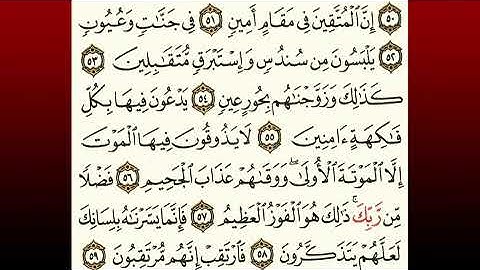 ٥٠ إِنَّ ٱلْمُتَّقِينَ فِى مَقَامٍ أَمِينٍ ٥١ فِى جَنَّٰتٍ وَعُيُونٍ
٥٢ يَلْبَسُونَ مِن سُندُسٍ وَإِسْتَبْرَقٍ مُّتَقَٰبِلِينَ ٥٣
كَذَٰلِكَ وَزَوَّجْنَٰهُم بِحُورٍ عِينٍ ٥٤ يَدْعُونَ فِيهَا بِكُلِّ
فَٰكِهَةٍ ءَامِنِينَ ٥٥ لَا يَذُوقُونَ فِيهَا ٱلْمَوْتَ
إِلَّا ٱلْمَوْتَةَ ٱلْأُولَىٰ ۖ وَوَقَىٰهُمْ عَذَابَ ٱلْجَحِيمِ ٥٦ فَضْلًا
مِّن رَّبِّكَ ۚ ذَٰلِكَ هُوَ ٱلْفَوْزُ ٱلْعَظِيمُ ٥٧ فَإِنَّمَا يَسَّرْنَٰهُ بِلِسَانِكَ
لَعَلَّهُمْ يَتَذَكَّرُونَ ٥٨ فَٱرْتَقِبْ إِنَّهُم مُّرْتَقِبُونَ ٥٩